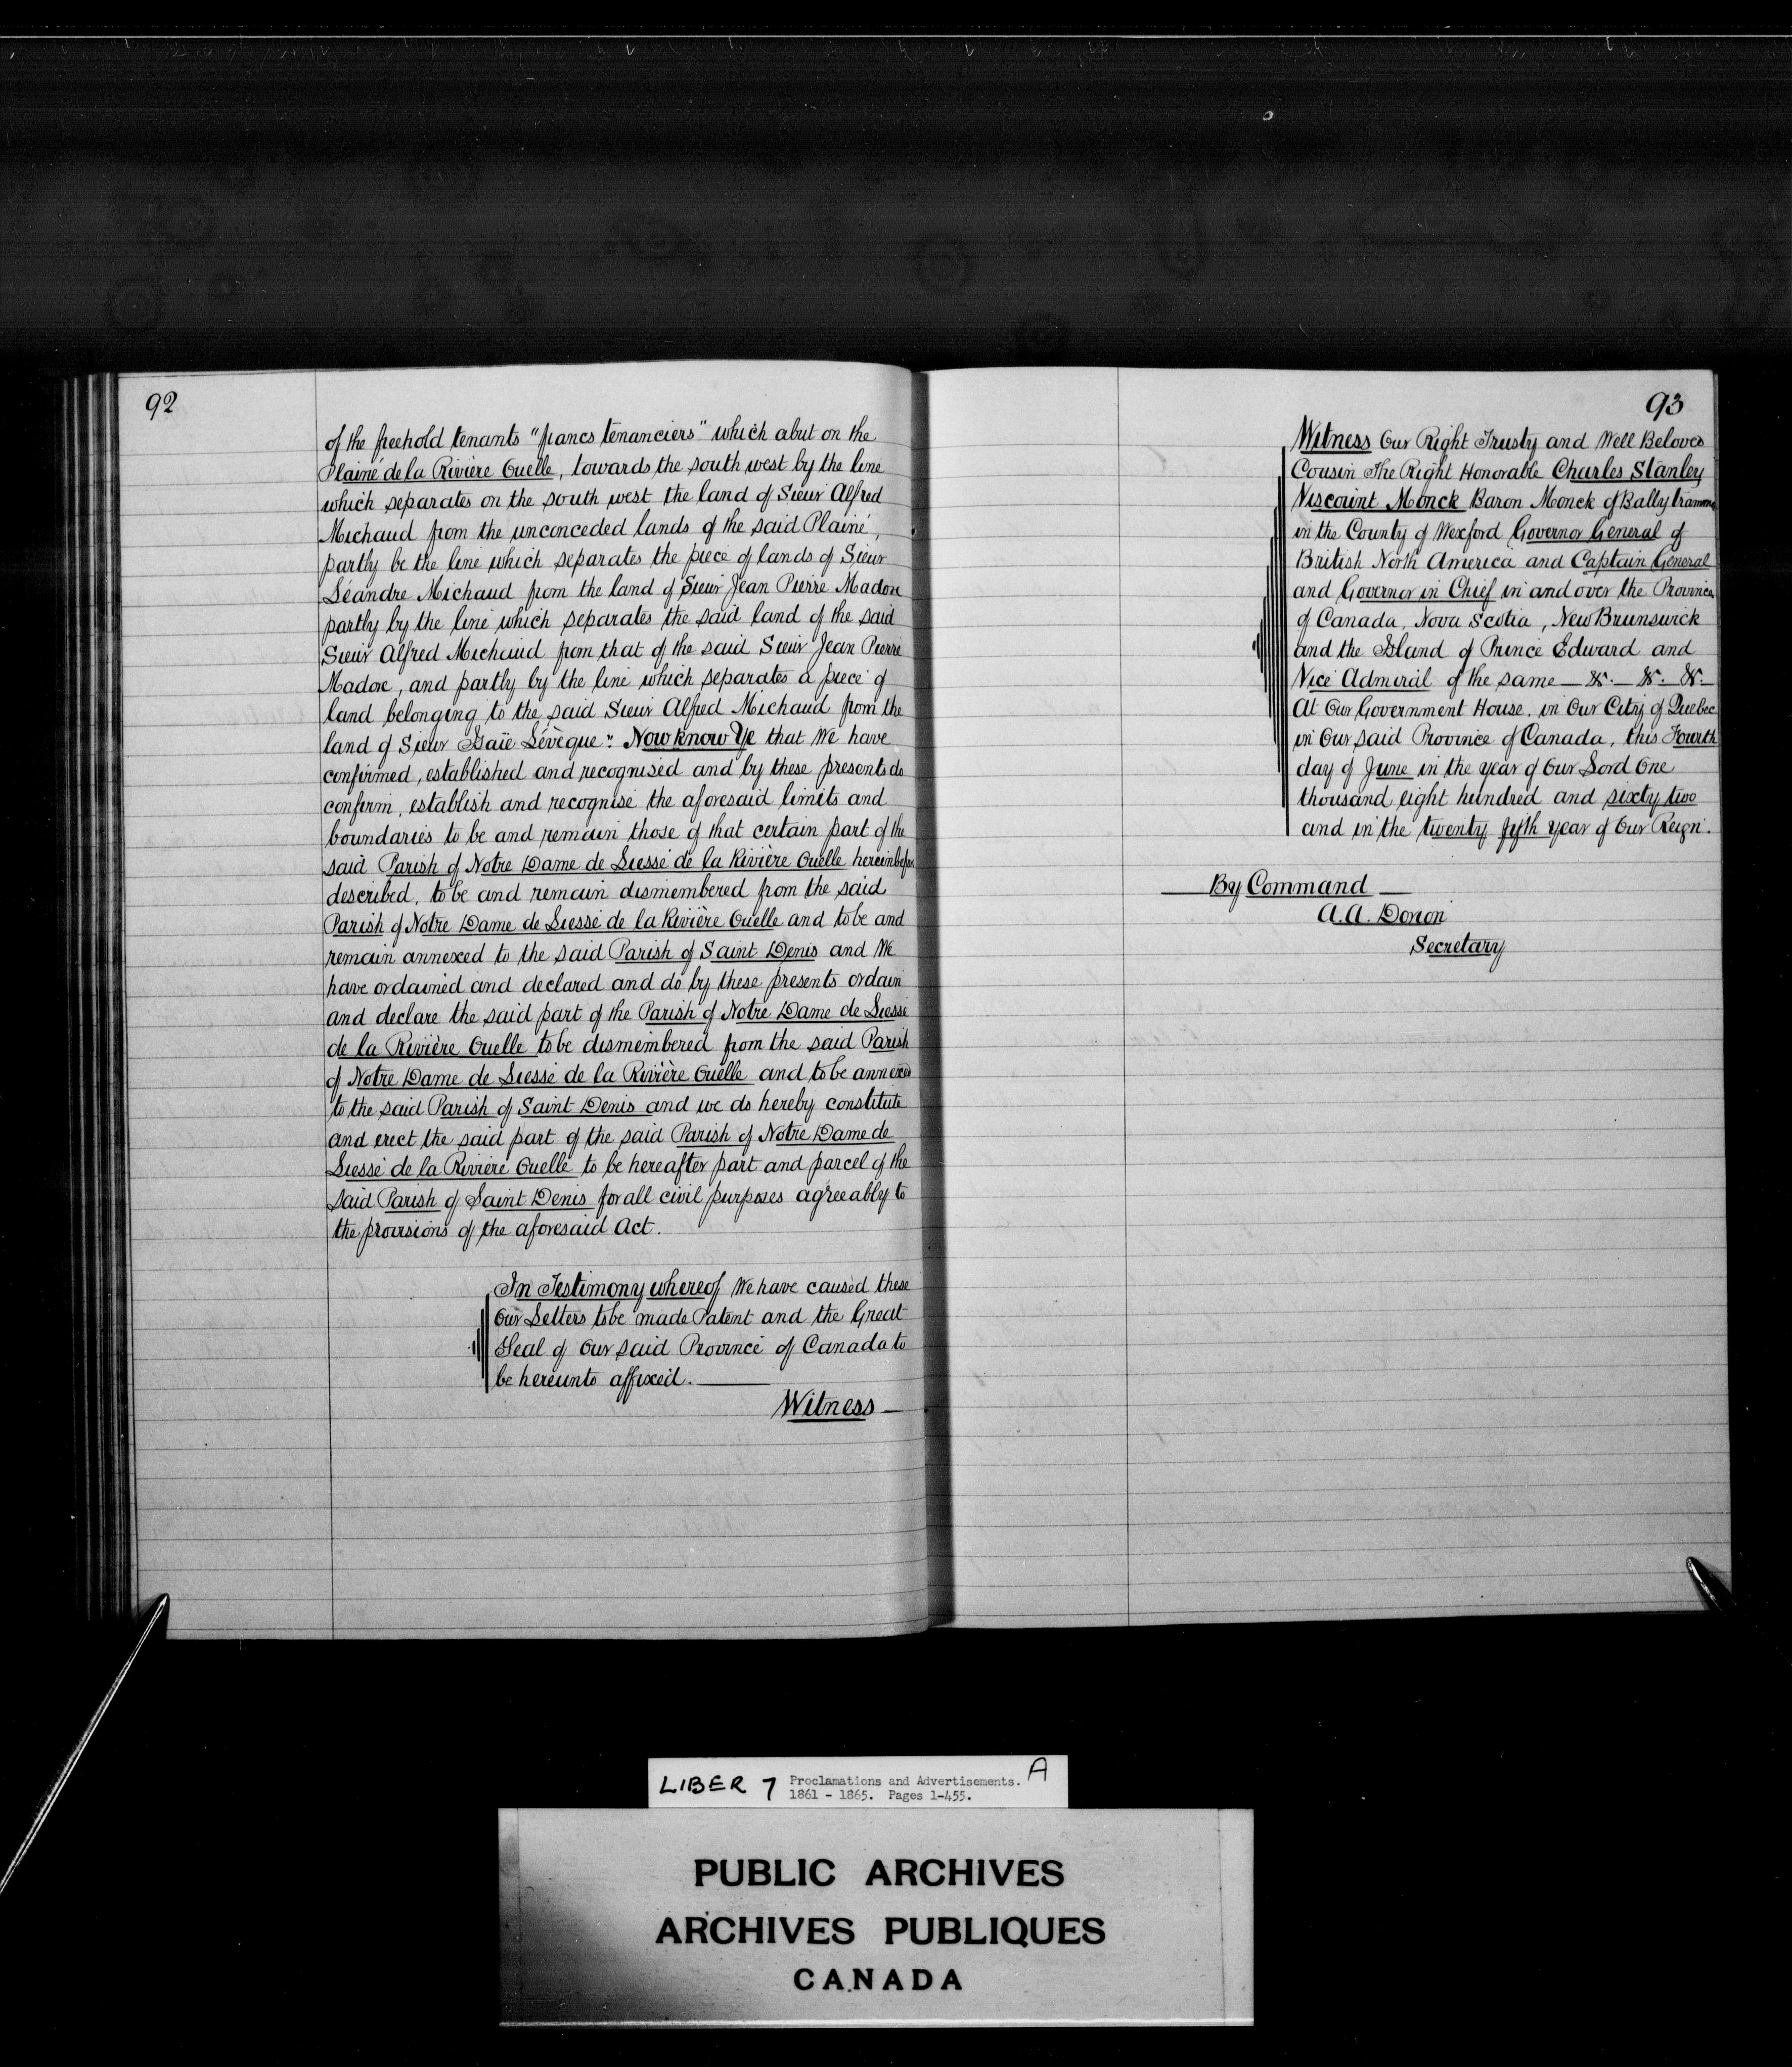 92
of the freehold tenants "francs tenanciers" which abut on the
Plaine de la Rivière Ouelle, towards the south west by the line
which separates on the south west the land of Sieur Alfred
Michaud from the unconceded lands of the said Plaine,
partly be the line which separates the piece of lands of Sieur
Léandre Michaud from the land of Sieur Jean Pierre Madore
partly by the line which separates the said land of the said
Sieur Alfred Michaud from that of the said Sieur Jean Pierre
Madore, and partly by the line which separates a piece of
land belonging to the said Sieur Alfred Michaud from the
land of Sieur Lévèque": Now know Ye that We have
confirmed, established and recognised and by these presents do
confirm, establish and recognise the aforesaid limits and
boundaries to be and remain those of that certain part of the
said Parish of Notre Dame de Liesse de la Rivière Ouelle hereinbefore
described, to be and remain dismembered from the said
Parish of Notre Dame de Liesse de la Rivière Ouelle and to be and
remain annexed to the said Parish of Saint Denis and We
have ordained and declared and do by these presents ordain
and declare the said part of the Parish of Notre Dame de Liesse
de la Rivière Ouelle to be dismembered from the said Parish
of Notre Dame de Liesse de la Rivière Ouelle and to be annexed
to the said Parish of Saint Denis and we do hereby constitute
and erect the said part of the said Parish of Notre Dame de
Liesse de la Rivière Ouelle to be hereafter part and parcel of the
said Parish of Saint Denis for all civil purposes agreeably to
the provisions of the aforesaid Act.
In Testimony whereof We have caused these
Our Letters to be made Patent and the Great
Seal of Our said Province of Canada to
be hereunto affixed.
Witness
93
Witness Our Right Trusty and Well Beloved
Cousin The Right Honorable Charles Stanley
Viscount Monck Baron Monck of Ballytrammon
in the County of Wexford Governor General of
British North America and Captain General
and Governor in Chief in and over the Provinces
of Canada, Nova Scotia, New Brunswick
and the Island of Prince Edward and
Vice Admiral of the same — &c. — &c. &c. —
At Our Government House, in Our City of Quebec
in Our said Province of Canada, this Fourth
day of June in the year of Our Lord One
thousand eight hundred and sixty two
and in the twenty fifth year of Our Reign.
By Command
A.A. Dorion
Secretary
LIBER 7 Proclamations and Advertisements. A
1861 - 1865. Pages 1-455.
PUBLIC ARCHIVES
ARCHIVES PUBLIQUES
CANADA